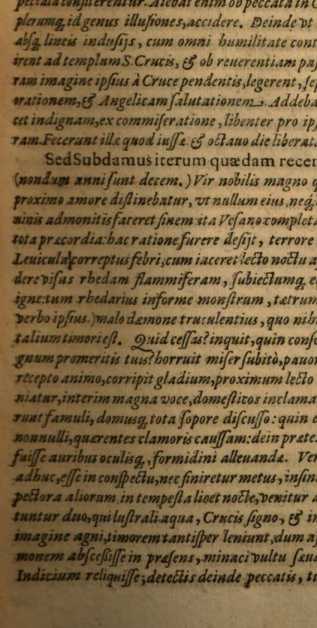 peccata confiterentur. Aiebat enim ob peccata in C
plerumq, id genus illusiones, accidere. Deinde vt
absq, lineis indusijs, cum omni humilitate cont
irent ad templum S. Crucis, & ob reuerentiam pa
ram imagine ipsius à Cruce pendentis, legerent, se
orationem, & Angelicam salutationem. Addeba
cet indignam, ex commiseratione, libenter pro ip
ram. Fecerunt illæ quod iussæ & octauo die liberat
Sed Subdamus iterum quædam recen
(nondum anni sunt decem.) Vir nobilis magno q
proximo amore distinebatur, vt nullum eius, neq,
uinis admonitis fateret finem ita Vesano complet
tota præcordia: hac ratione furere desijt, terrore
Leuicula correptus febri, cum iaceret lecto noctu a
dere visus rhedam flammiferam, subiectumq, e
igne: tum rhedarius informe monstrum, tætrum
verbo ipsius) malo dæmone truculentius, quo nih
talium timori est. Quid cessas? inquit, quin consc
gnum promeritis tuis? horruit miser subitò, pauor
recepto animo, corripit gladium, proximum lecto
niatur, interim magna voce, domesticos inclama
runt famuli, domusq, tota sopore discusso: quin e
nonnulli, quærentes clamoris caussam: dein præte
fuisse auribus oculisq, formidini alleuandæ. Ver
adhuc, esse in conspectu, nec finiretur metus, insin
pectora aliorum in tempesta licet nocte, venitur a
tuntur duo, qui lustrali aqua, Crucis signo, & in
imagine agni, timorem tantisper leniunt, dum a
monem abscessisse in præsens, minaci vultu sæu
Indicium reliquisse; detectis deinde peccatis, t